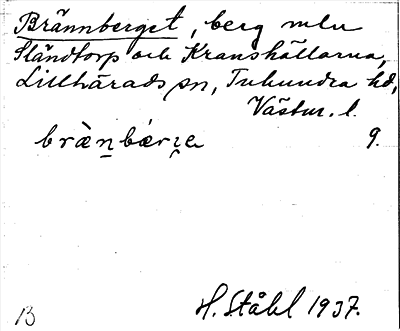 Brännberget, berg mln
Ståndtorp och Kranshällarna,
Lillhärads sn, Tuhundra hd,
Västm. l.
bræ̀n̠bæ̀rɪ̯e 9.
H. Ståhl 1937.
13